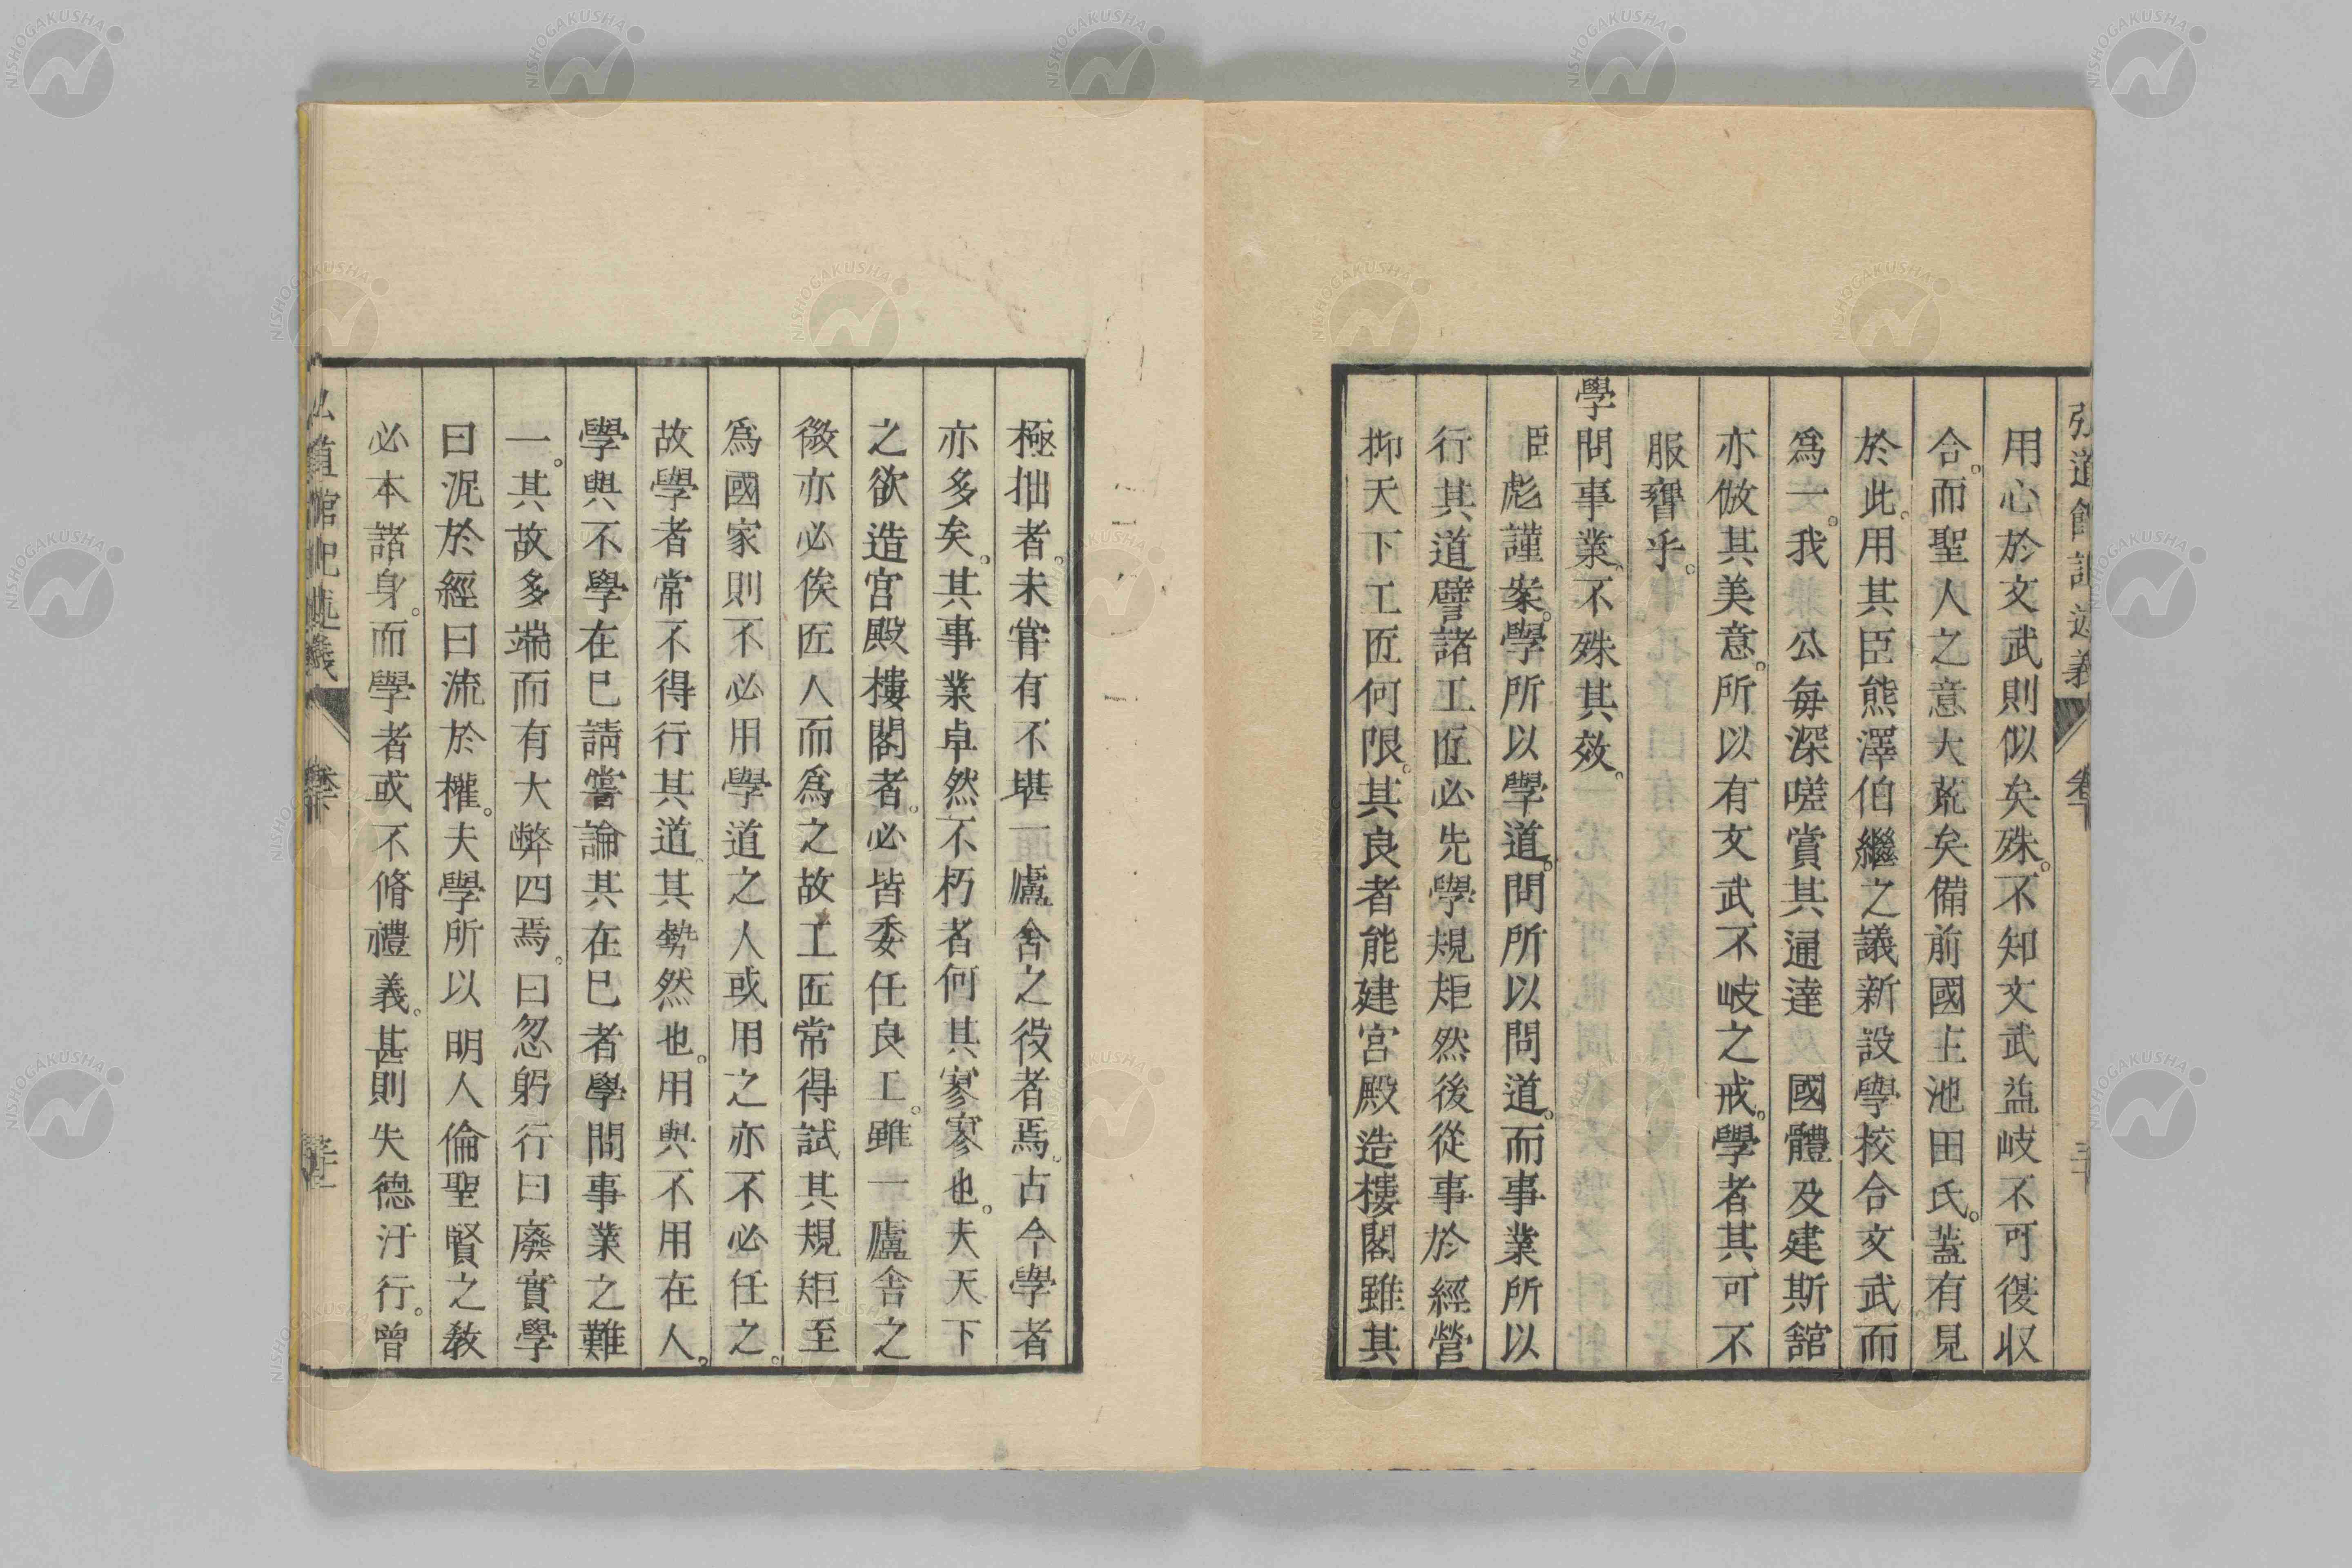 弘道館記述義
卷下
用心於文武則似矣殊。不知文武益岐不可復収
合。而聖人之意大荒矣備前國主池田氏。蓋有見
於此。用其臣熊澤伯繼之議新設學校合文武而
爲一。我　公每深嗟賞其通達　國體及建斯舘
亦倣其美意。所以有文武不岐之戒。學者其可不
服膺乎。
學問事業。不殊其效。
臣彪謹案。學所以學道。問所以問道。而事業所以
行其道譬諸工匠必先學規矩然後從事於經營
抑天下工匠何限。其良者能建宮殿造樓閣雖其
極拙者。未甞有不堪一廬舍之役者焉。古今學者
亦多矣。其事業卓然不朽者何其寥寥也。夫天下
之欲造宮殿樓閣者。必皆委任良工。雖一廬舍之
微亦必俟匠人而爲之故工匠常得試其規矩至
爲國家則不必用學道之人或用之亦不必任之。
故學者常不得行其道。其勢然也。用與不用在人。
學與不學在已請嘗論其在已者學問事業之難
一。其故多端而有大弊四焉。曰忽躬行曰廢實學
曰泥於經曰流於權。夫學所以明人倫聖賢之教
必本諸身。而學者或不脩禮義。甚則失德汙行。曾
弘道館記述義
卷下
NISHOGAKUSHA